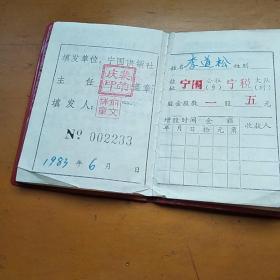 填发单位：宁国供销社
主 任
填发人：
№ 002233
1983年6月 日
姓名 李道松 性别
住址 宁国 公社(乡) 宁税 大队(村)
股金股数 一 股 五 元
增股时间 金额 收款人
年 月 日 拾 元 角